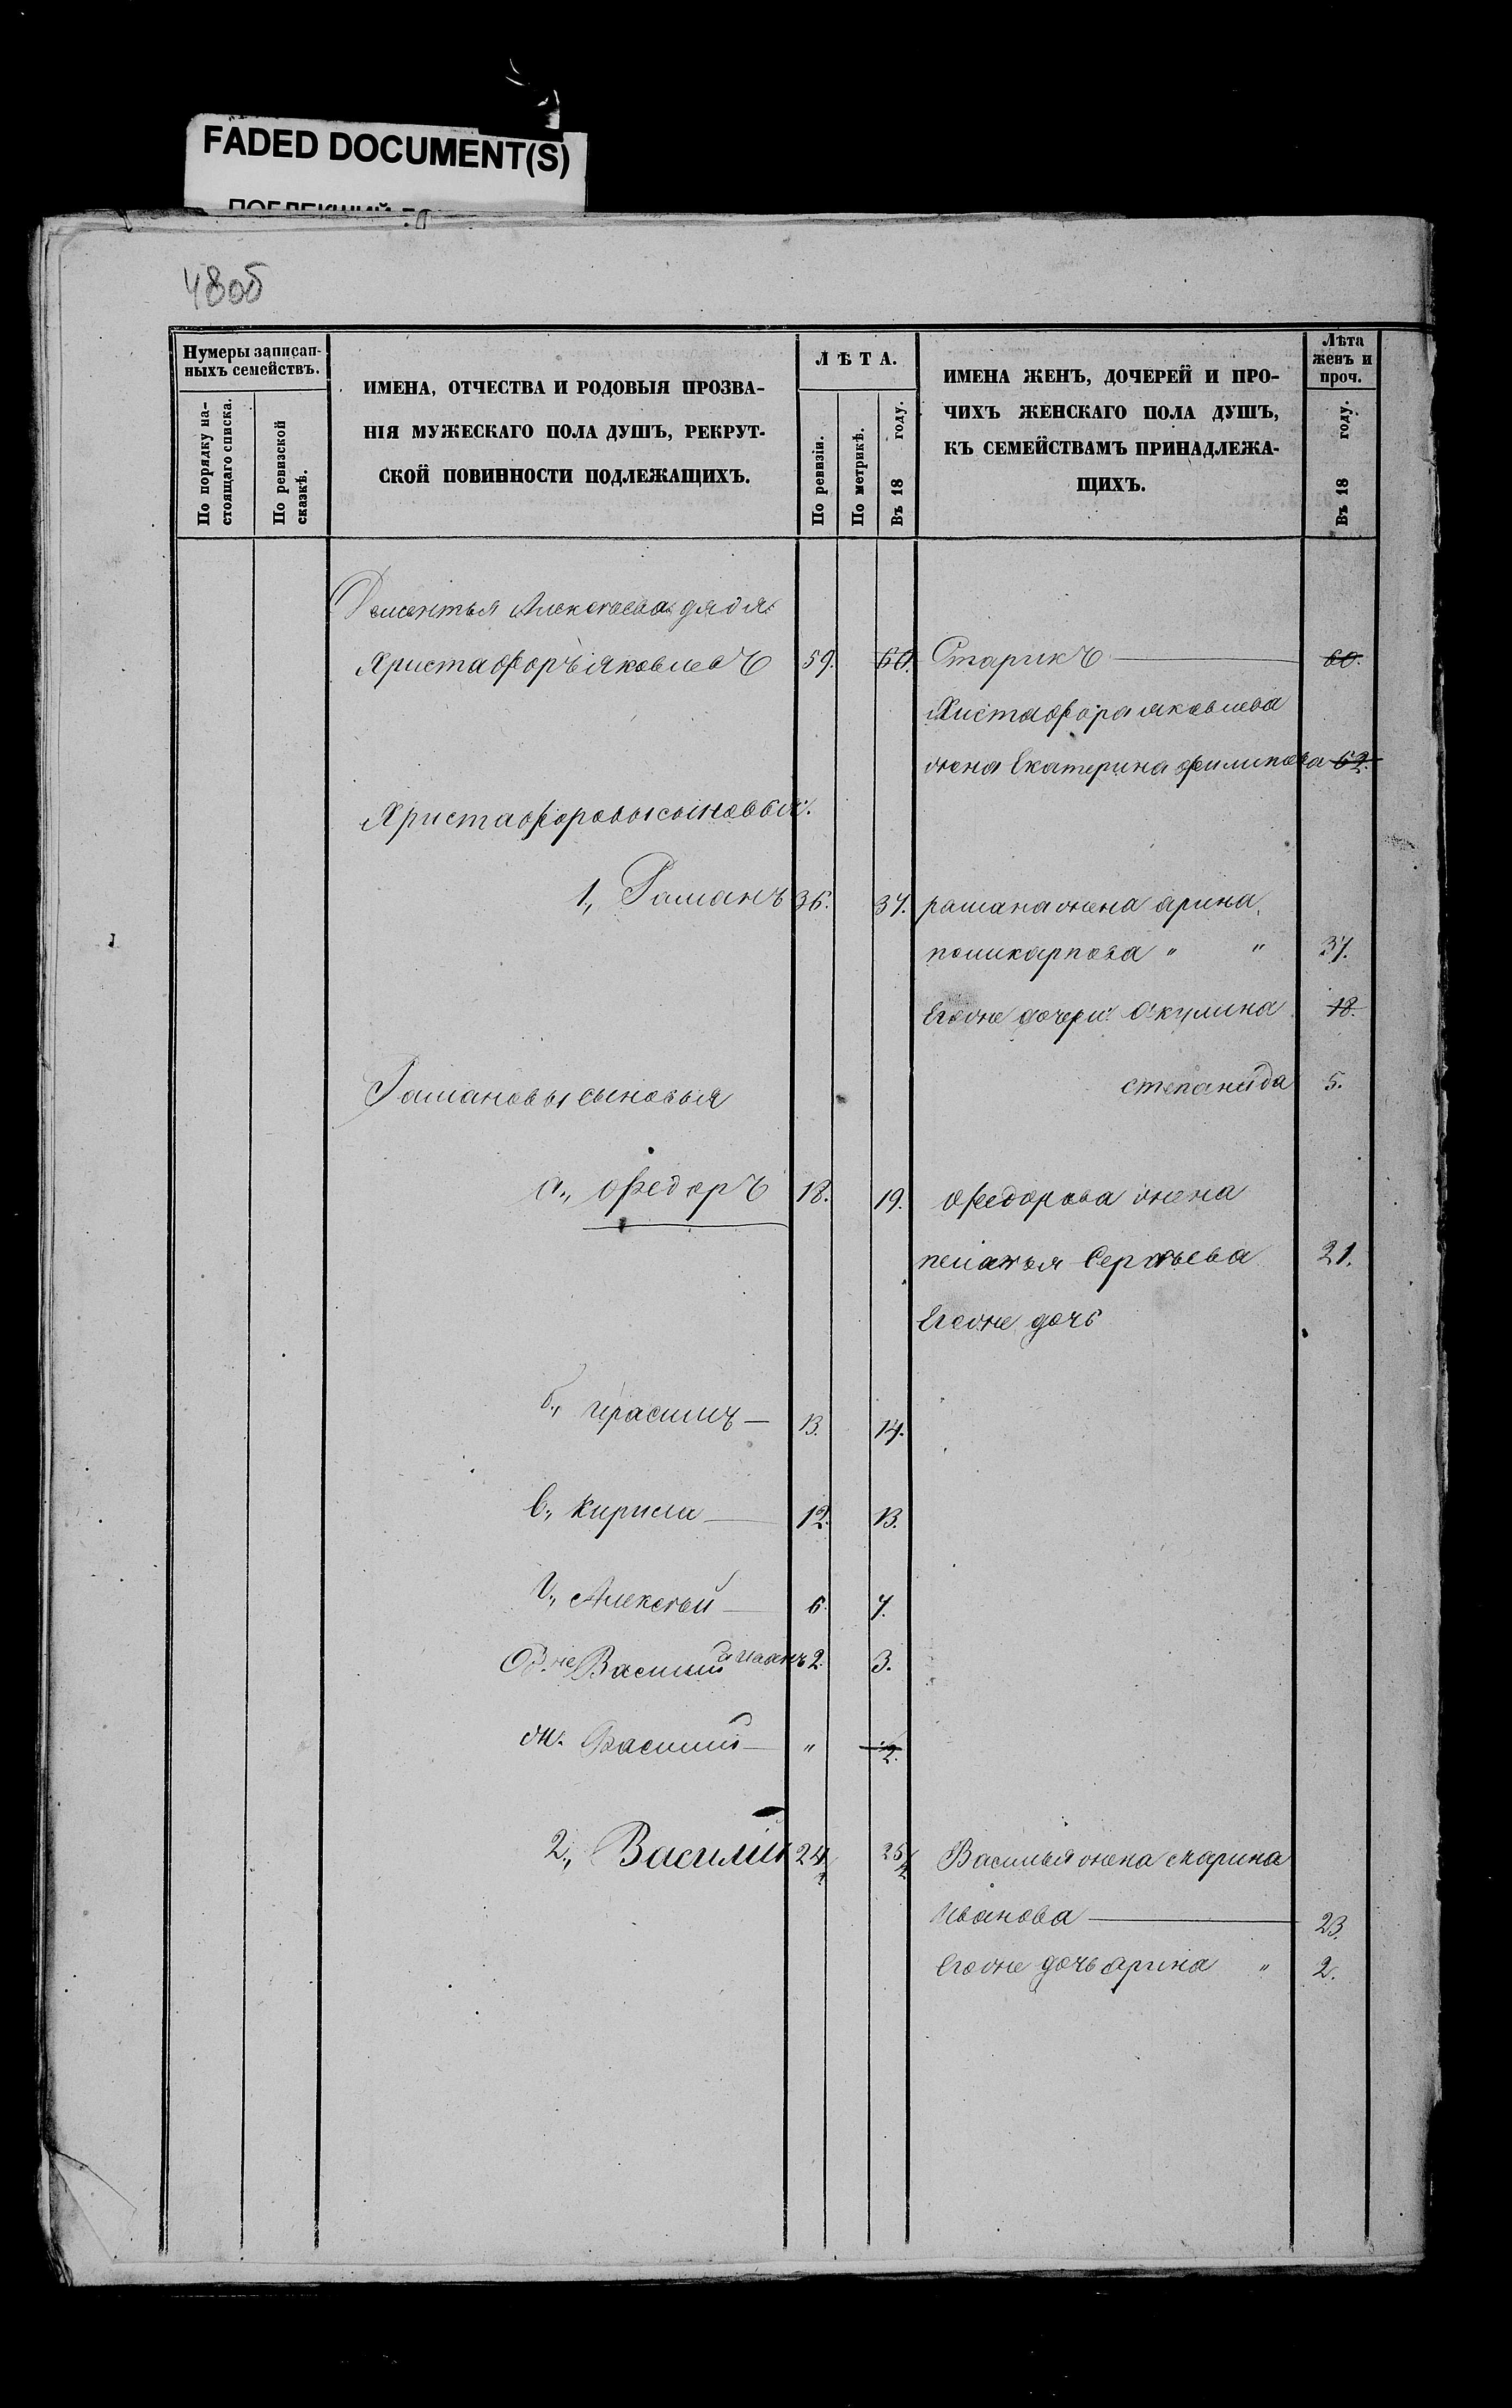 FADED DOCUMENT(S)
48об
Нумеры записан-
ныхъ семействъ.
По порядку на-
стоящаго списка.
По ревизской
сказкѣ.
ИМЕНА, ОТЧЕСТВА И РОДОВЫЯ ПРОЗВА-
НІЯ МУЖЕСКАГО ПОЛА ДУШЪ, РЕКРУТ-
СКОЙ ПОВИННОСТИ ПОДЛЕЖАЩИХЪ.
ЛѢТА.
По ревизіи.
По метрикѣ.
Въ 18 году.
ИМЕНА ЖЕНЪ, ДОЧЕРЕЙ И ПРО-
ЧИХЪ ЖЕНСКАГО ПОЛА ДУШЪ,
КЪ СЕМЕЙСТВАМЪ ПРИНАДЛЕЖА-
ЩИХЪ.
Лѣта
женъ и
проч.
Въ 18 году.
Дементья Алексѣева дядя:
Христафоръ яковлевъ 59. 60. Старикъ — 60.
Хистафора яковлева
жена Екатерина филипова 62.
Христафоровы сыновья:
1., Раманъ 36. 37. рамана жена арина
поликарпова " " 37.
Егоже дочери: Окулина 18.
степанида 5.
Рамановы сыновья
а., федоръ 18. 19. федорова жена
пелагья Сергѣева 21.
Егоже дочь
б., ирасимъ — 13. 14.
в., Кирила — 12. 13.
г., Алексѣй — 6. 7.
Василий Иванъ 2. 3.
ж. Василий — " 2.
2., Василій 24 25 Василья жена марина
Иванова — 23.
Егоже дочь арина " 2.